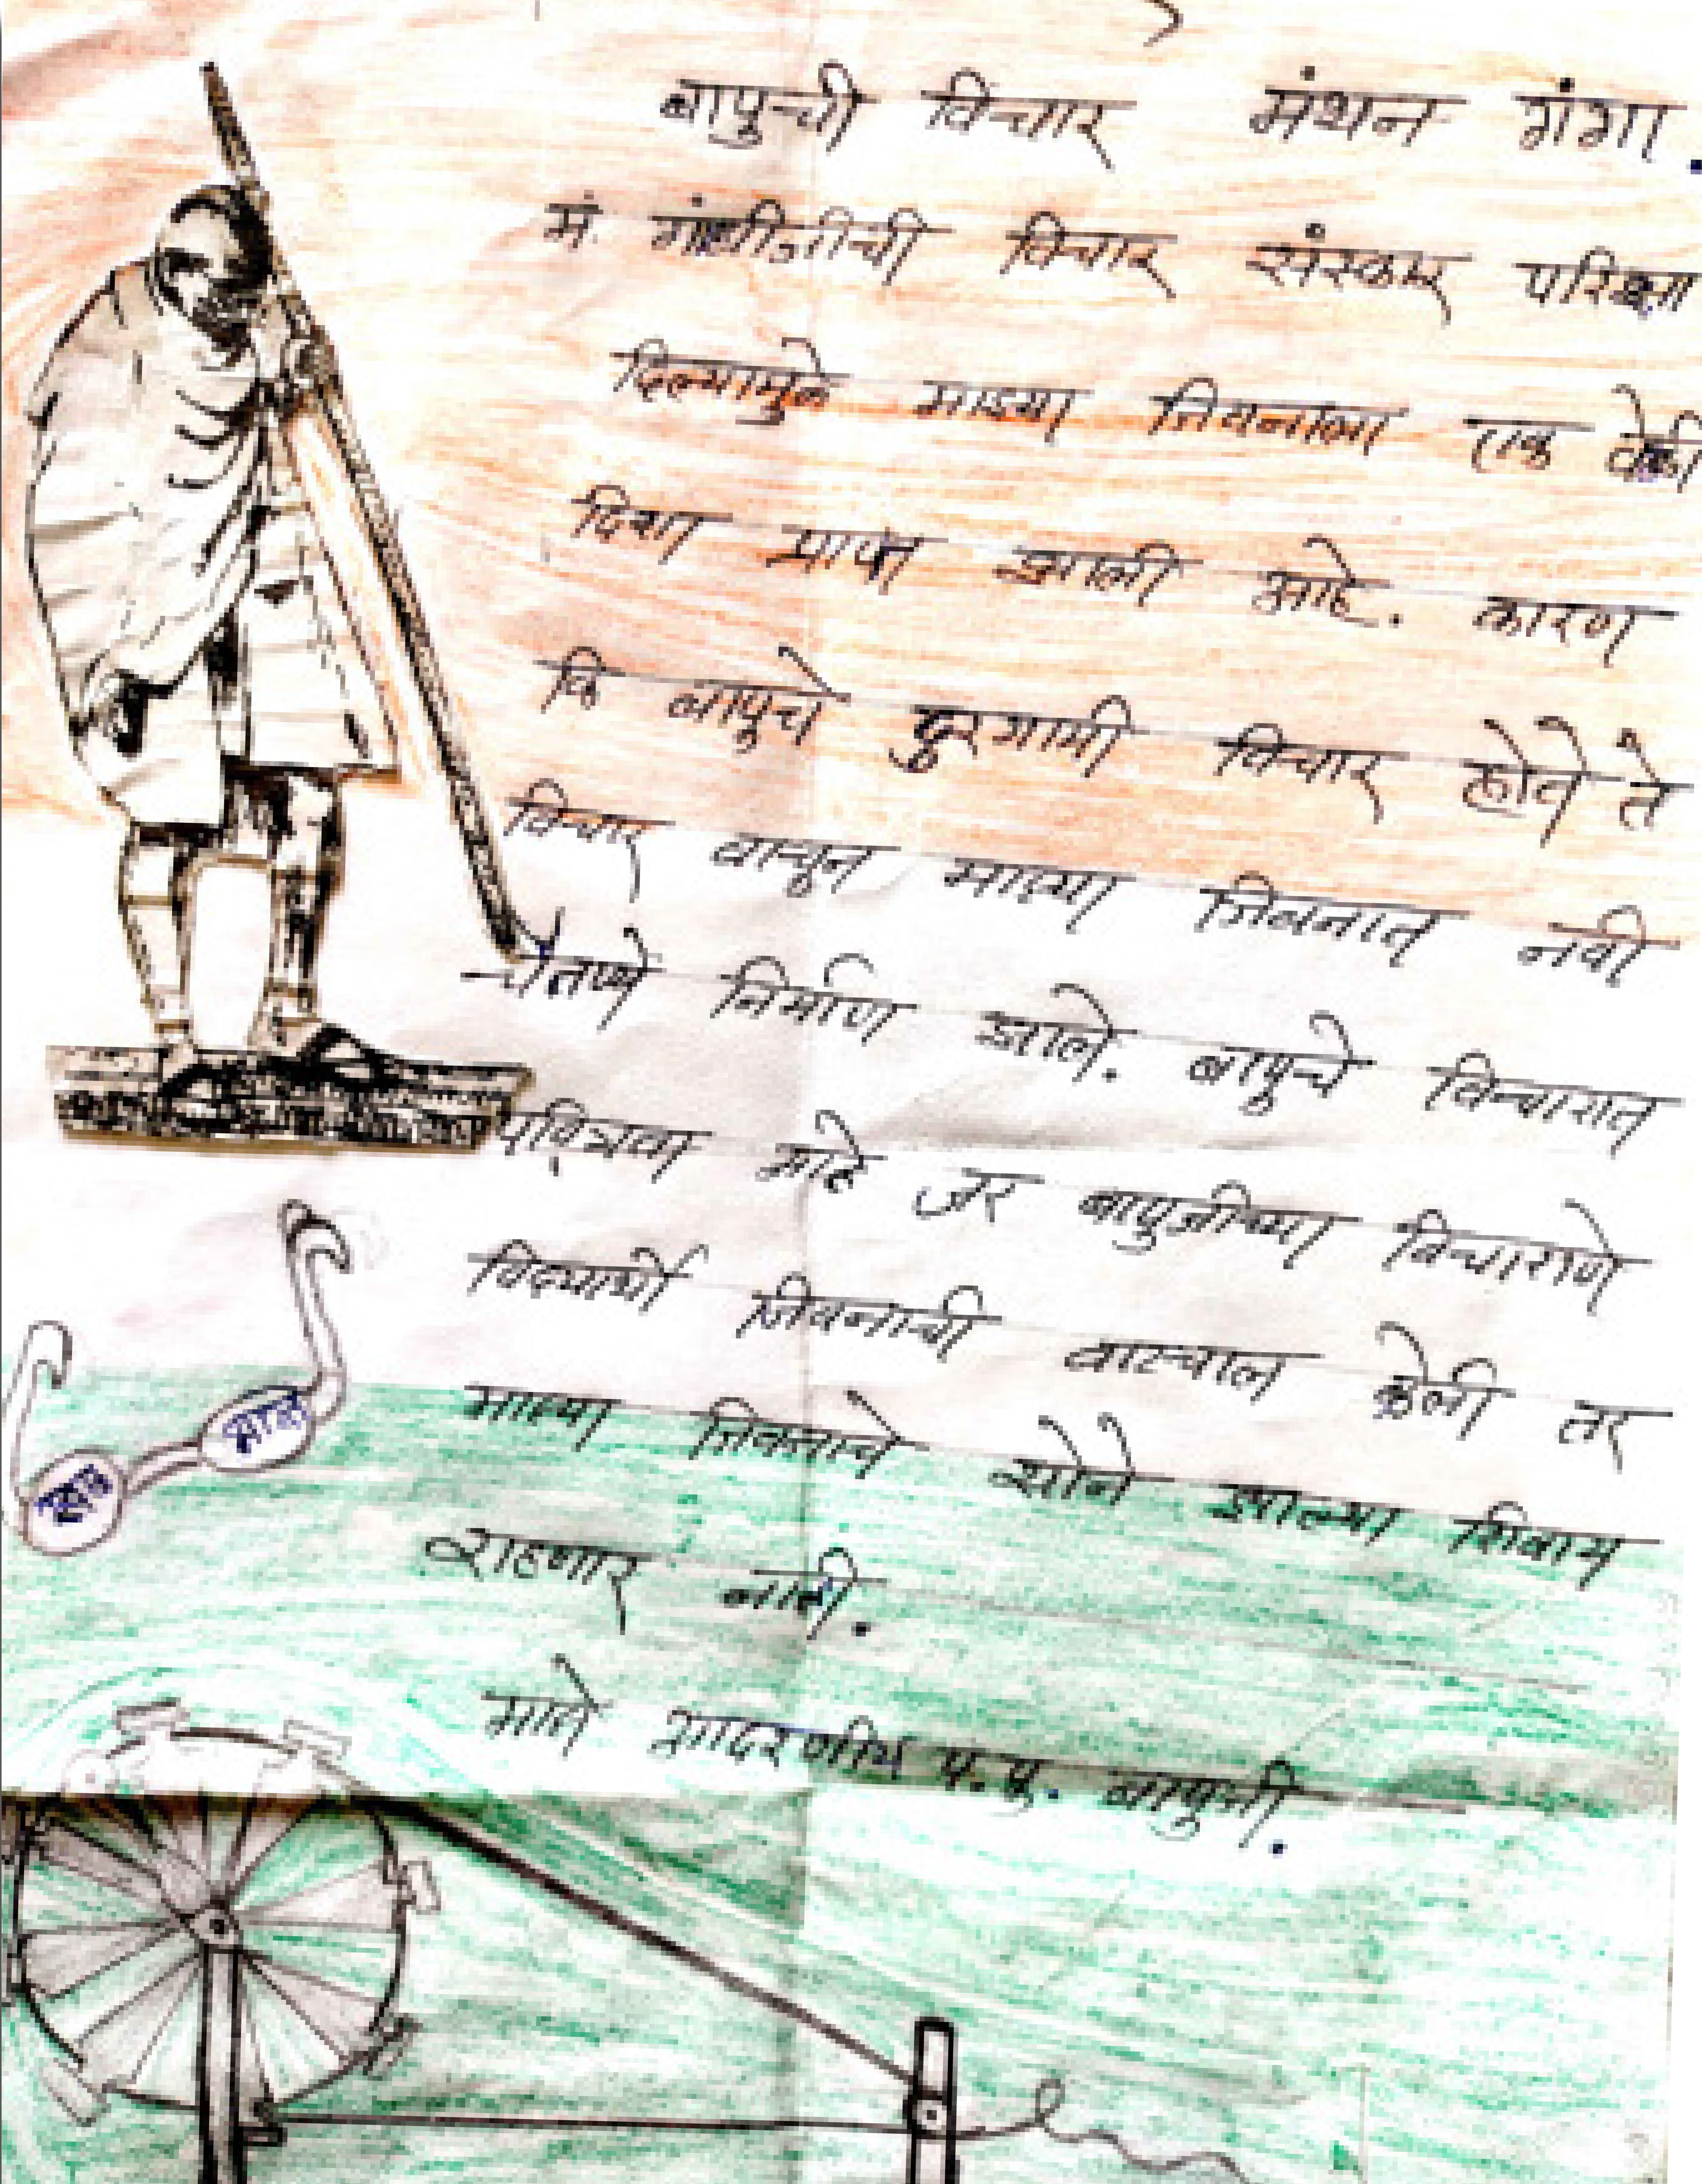 बापुची विचार मंथन गंगा.
मं. गांधीजीची विचार संस्कार परिक्षा
दिल्यामुळे माझ्या जिवनाला एक वेळी
दिशा प्राप्त झाली आहे. कारण
कि बापूचे दुरगामी विचार होते ते
विचार वाचून माझ्या जिवनात नवी
चैतण्ये निर्माण झाले. बापूचे विचारात
पवित्रता आहे जर बापुजीच्या विचाराणे
विद्यार्थी जिवनाची वाटचाल केली तर
माझ्या जिवनाचे सोने झाल्या शिवाय
राहणार नाही.
माते आदरणीय प.पू. बापुजी.